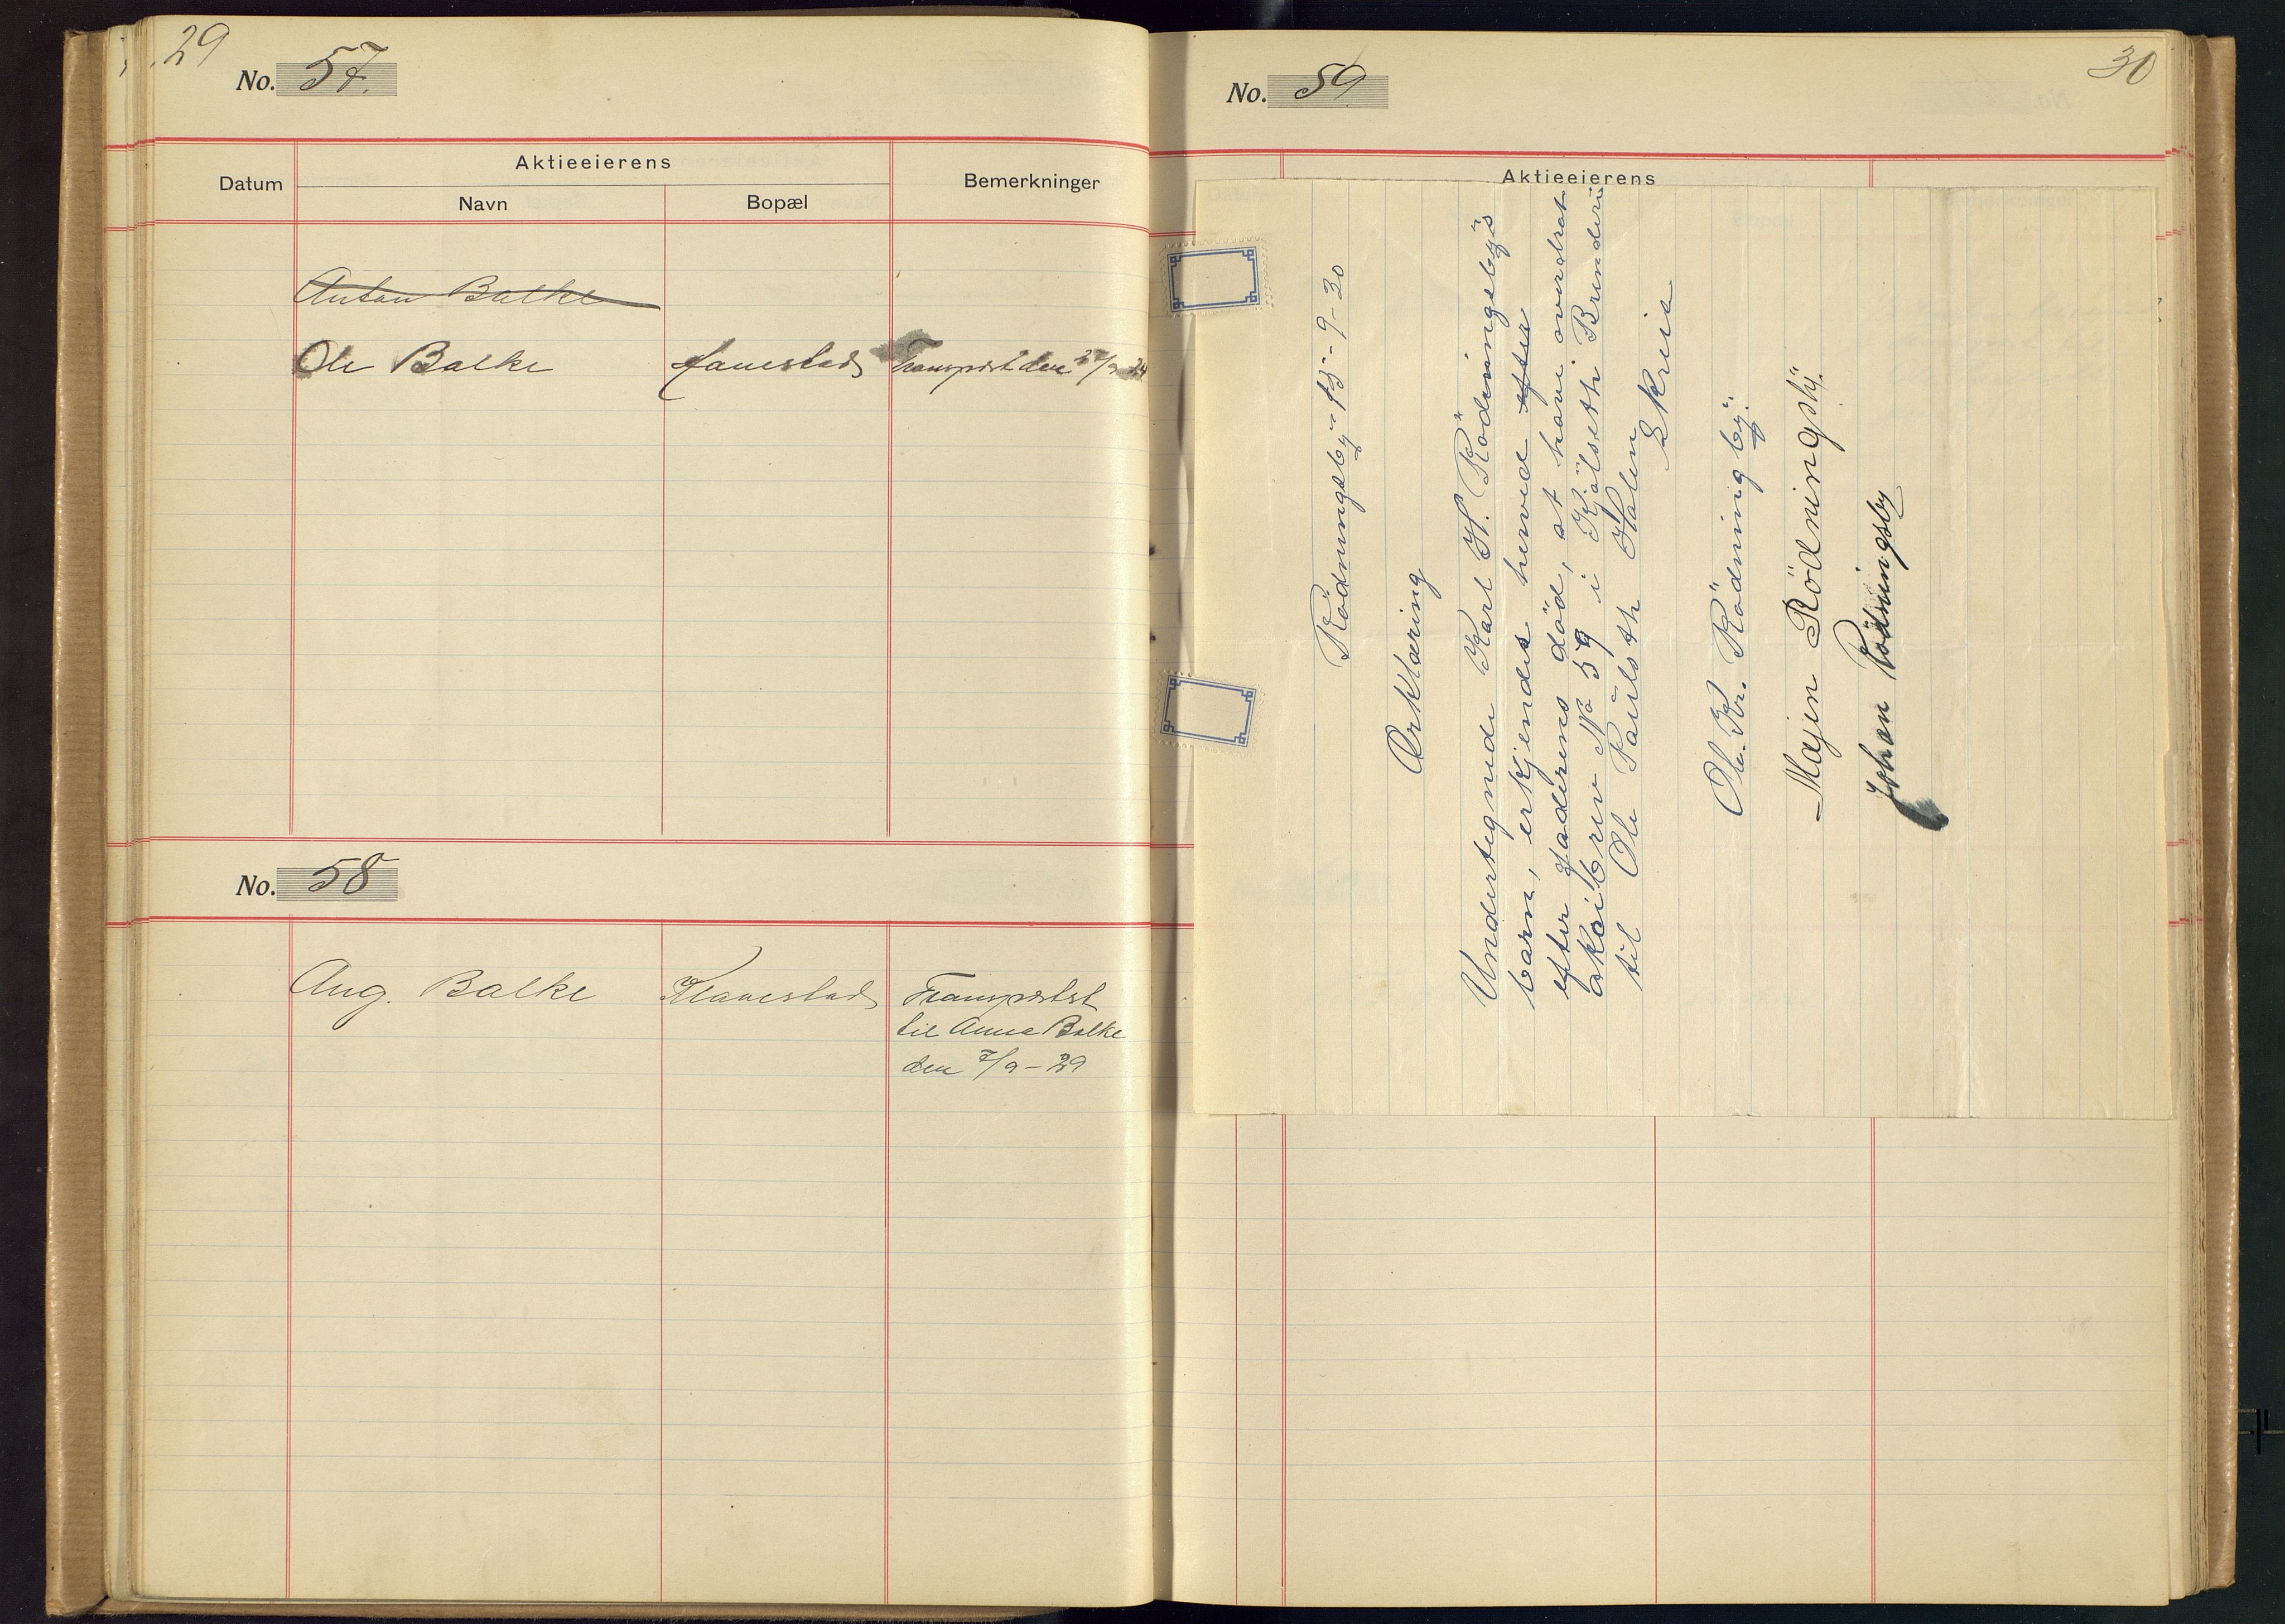 29
No. 57.
Aktieeierens
Datum Navn Bopæl Bemerkninger
Anton Balke
Ole Balke Fanestad Transport den
No. 58
Aug. Balke Klanestad Transportert
til Anna Balke
den 7/9 - 29
30
No. 59
Aktieeierens
Rödningsbÿ 15-9-30
Ærklæring
Undertegnede Karl H. Rödningsbÿs
barn, erkjendes herved efter
efter faderens död, at have overdrat
aksibrev № 59 i Kjölseth Brænderi
til Ole Paulseth Holen
Ekreis
Ole. Kr. Rödningbÿ.
Majen Rödningsbÿ.
Johan Rödningsby